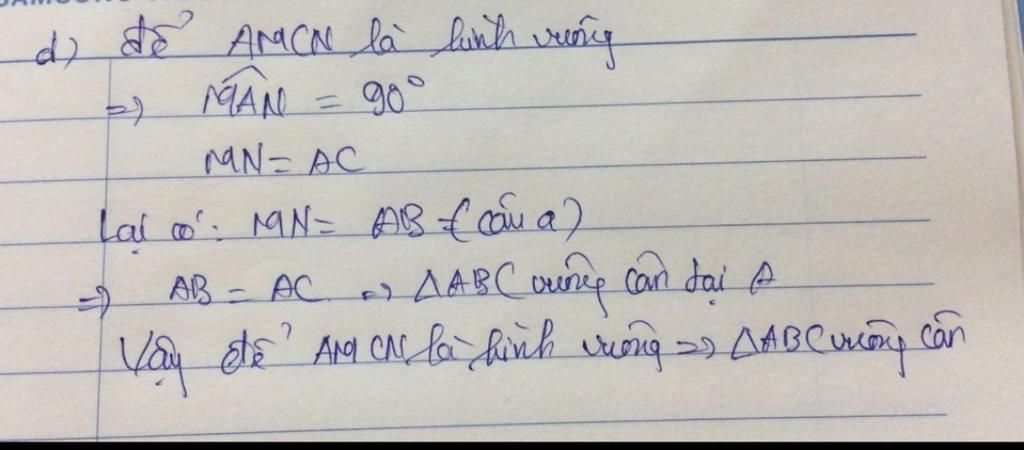 SAMSUNG
d) để AMCN là hình vuông
=> MAN = 90°
MN = AC
Lại có: MN = AB (câu a)
=> AB = AC => ΔABC vuông cân tại A
Vậy để AMCN là hình vuông => ΔABC vuông cân